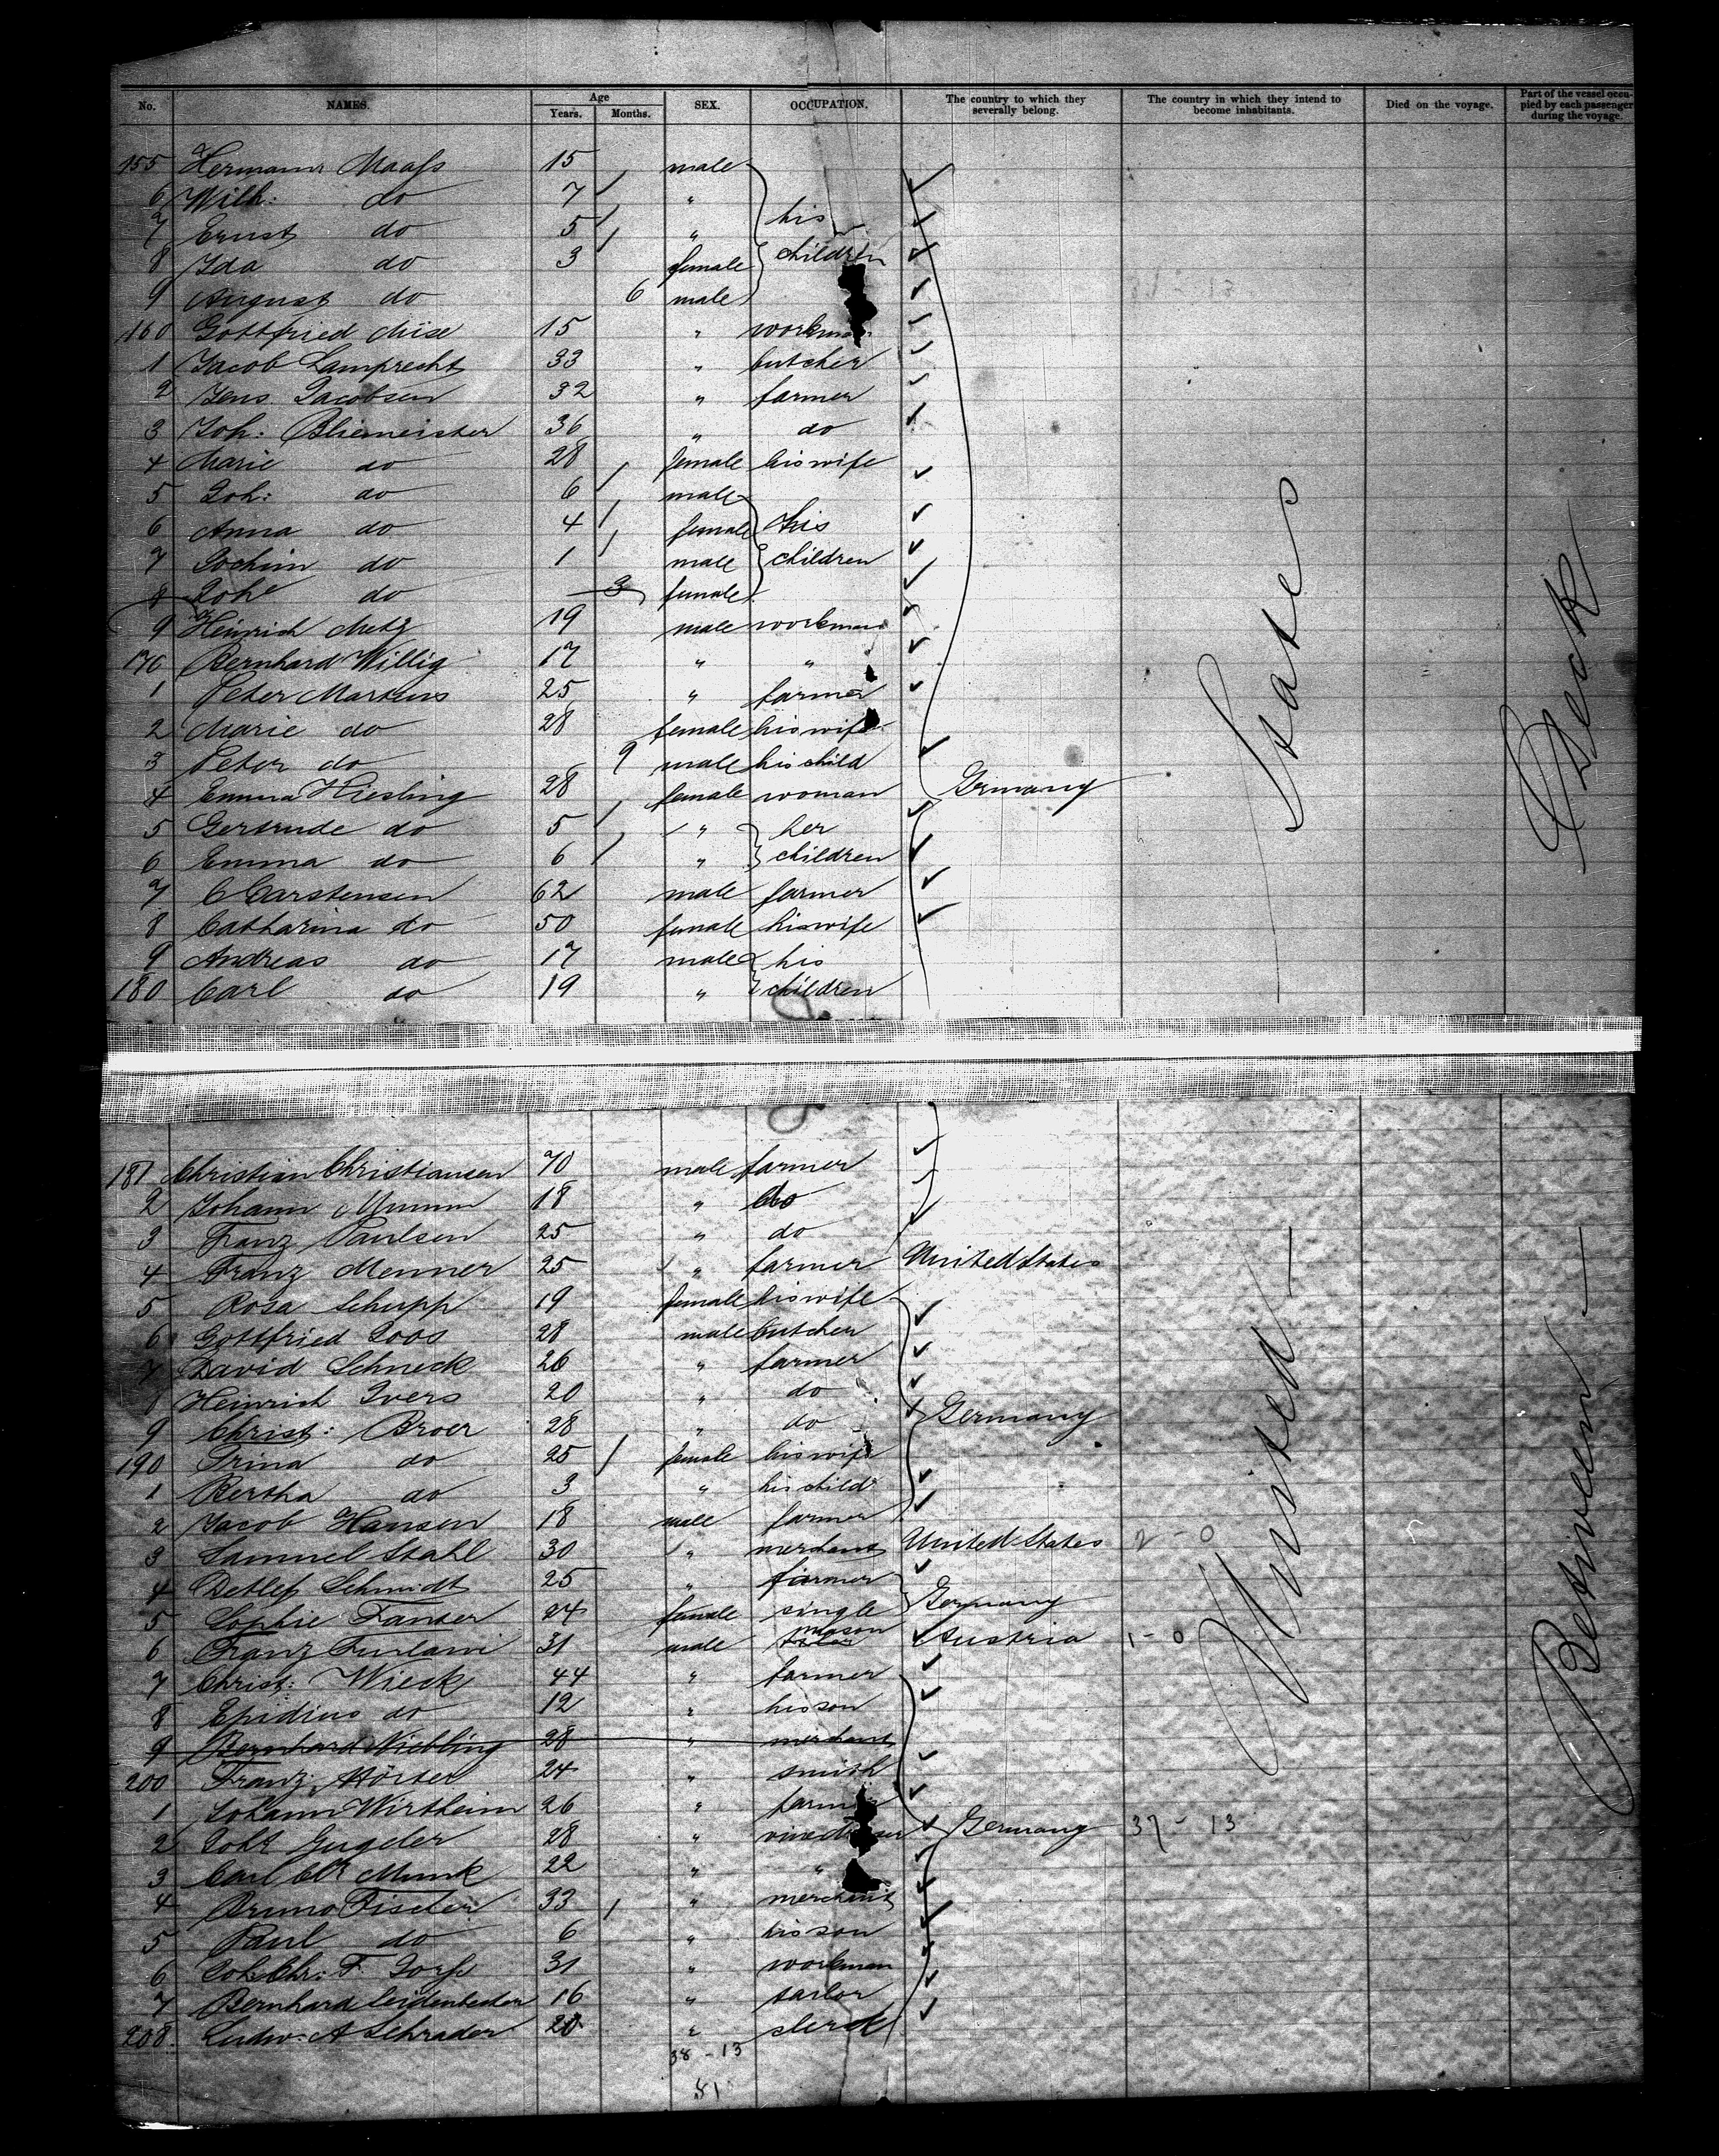 No. NAMES. Age Years. Months. SEX. OCCUPATION. The country to which they severally belong. The country in which they intend to become inhabitants. Died on the voyage. Part of the vessel occupied by each passenger during the voyage.
155 Hermann Maass 15 male
6 Wilh: do 7 "
7 Ernst do 5 " his
8 Ida do 3 female children
9 August do 6 male
160 Gottfried Mise 15 " workman
1 Jacob Lamprecht 33 " butcher
2 Jens Jacobsen 32 " farmer
3 Joh: Bliemeister 36 " do
4 Marie do 28 female his wife
5 Joh: do 6 male
6 Anna do 4 female his
7 Jochim do 1 male children
8 Johe do 3 female
9 Heinrich Metz 19 male workman
170 Bernhard Willig 17 " "
1 Peter Martens 25 " farmer
2 Marie do 28 female his wife
3 Peter do 9 male his child
4 Emma Kiesling 28 female woman Germany
5 Gertrude do 5 " her
6 Emma do 6 " children
7 C Carstensen 62 male farmer
8 Catharina do 50 female his wife
9 Andreas do 17 male his
180 Carl do 19 " children
States
Deck
181 Christian Christiansen 70 male farmer
2 Johann Mumm 18 " do
3 Franz Paulsen 25 " do
4 Franz Menner 25 " farmer United States
5 Rosa Schupp 19 female his wife
6 Gottfried Joos 28 male butcher
7 David Schneck 26 " farmer
8 Heinrich Ivers 20 " do
9 Christ: Broer 28 " do Germany
190 Trina do 25 female his wife
1 Bertha do 3 " his child
2 Jacob Hansen 18 male farmer
3 Samuel Stahl 30 " merchant United States 2-0
4 Detlef Schmidt 25 " farmer
5 Sophie Fanser 24 female single Germany
6 Franz Furlawi 31 male mason Austria 1-0
7 Christ: Wieck 44 " farmer
8 Epidius do 12 " his son
9 Bernhard Niebling 28 " merchant
200 Franz Hörter 24 " smith
1 Johann Wirtheim 26 " farmer
2 Joht Gugeler 28 " Germany 37-13
3 Carl Chr Munk 22 " "
4 Bruno Fiseler 33 " merchant
5 Paul do 6 " his son
6 Joh Chr: F. 31 " workman
7 Bernhard 16 " tailor
208. Ludw: A Schrader 20 " clerk
38-13
51
United
Between